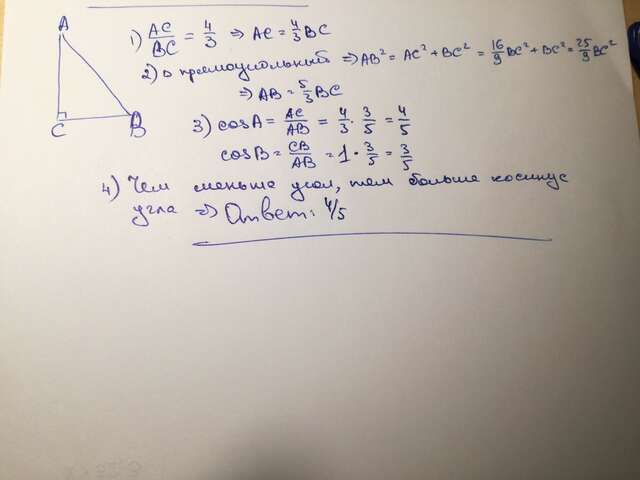 A
C
B
1) AC/BC = 4/3 ⇒ AC = 4/3 BC
2) △ прямоугольный ⇒ AB² = AC² + BC² = 16/9 BC² + BC² = 25/9 BC²
⇒ AB = 5/3 BC
3) cosA = AC/AB = 4/3 · 3/5 = 4/5
cosB = CB/AB = 1 · 3/5 = 3/5
4) Чем меньше угол, тем больше косинус
угла ⇒ Ответ: 4/5